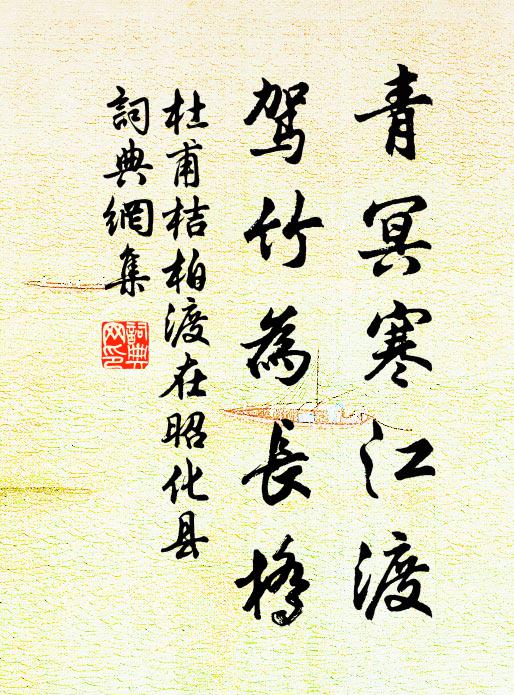 青冥寒江渡
駕竹為長橋
杜甫桔柏渡在昭化县
詞典網集
詞典
网印